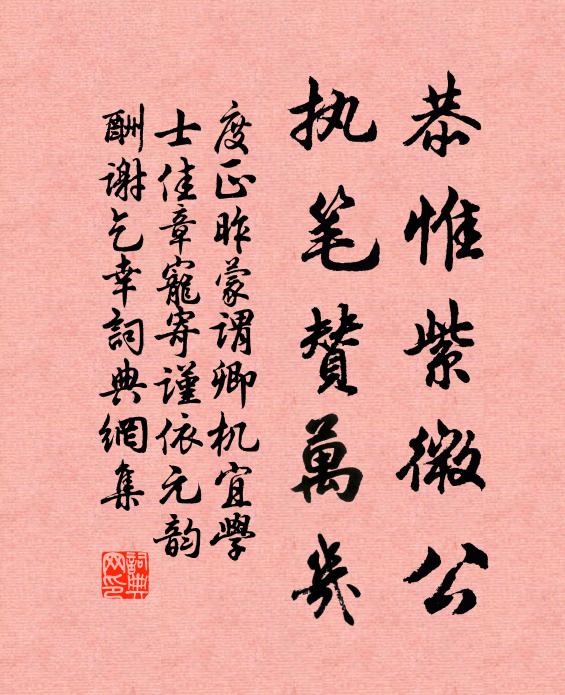 恭惟紫微公
执笔赞萬幾
度正昨蒙谓卿机宜學
士佳章寵寄谨依元韵
酬谢乞幸詞典網集
詞典
网印